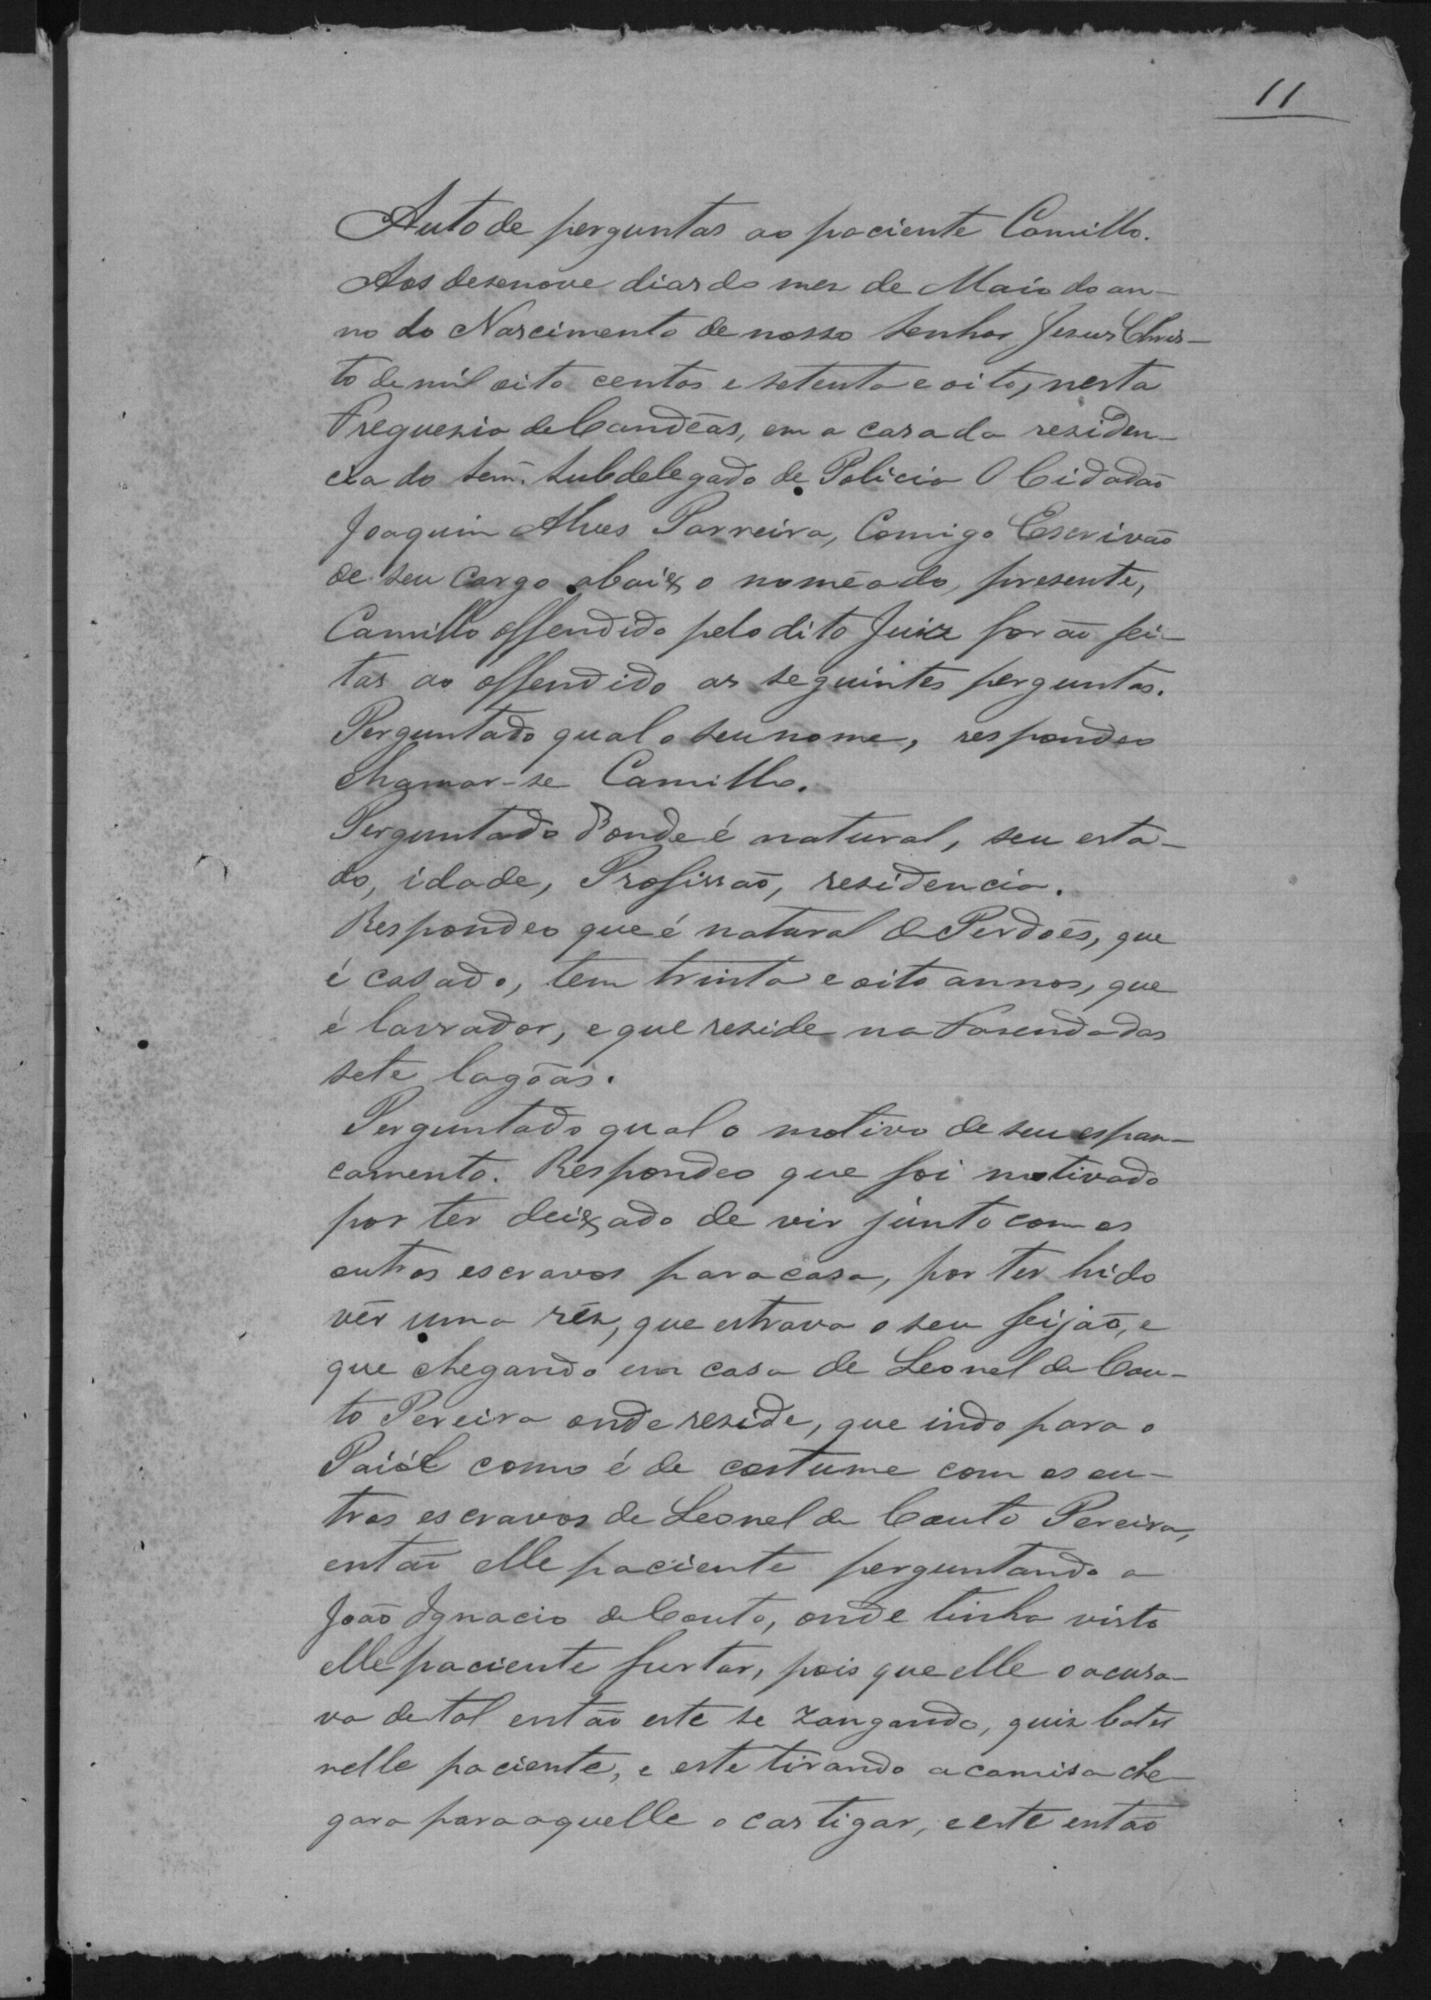 11
Auto de perguntas ao paciente Camillo.
Aos desenove dias do mez de Maio do an-
no do Nascimento de nosso Senhor Jesus Chris-
to de mil oito centos e setenta e oito, nesta
Freguezia de Candêas, em a casa da residen-
cia do Subdelegado de Policia O Cidadaõ
Joaquim Alves Parreira, Comigo Escrivaõ
de seu cargo abaixo nomeado, presente,
Camillo offendido pelo dito Juiz foraõ fei-
tas ao offendido as seguintes perguntas.
Perguntado qual o seu nome, respondeo
chamar-se Camillo.
Perguntado d'onde é natural, seu esta-
do, idade, Profissaõ, residencia.
Respondeo que é natural de Perdoẽs, que
é casado, tem trinta e oito annos, que
é lavrador, e que reside na Fasenda das
sete lagôas.
Perguntado qual o motivo de seu espan-
camento. Respondeo que foi motivado
por ter deixado de vir junto com os
outros escravos para casa, por ter hido
vêr uma rêz, que estrava o seu feijaõ, e
que chegando em casa de Leonel de Cou-
to Pereira onde reside, que indo para o
Paiól como é de costume com os ou-
tros escravos de Leonel de Couto Pereira,
entaõ elle paciente perguntando a
Joaõ Ignacio de Couto, onde tinha visto
elle paciente furtar, pois que elle o acusa-
va de tal entaõ este se zangando, quiz bater
nelle paciente, e este tirando a camisa che-
gara para aquelle o castigar, e este entaõ